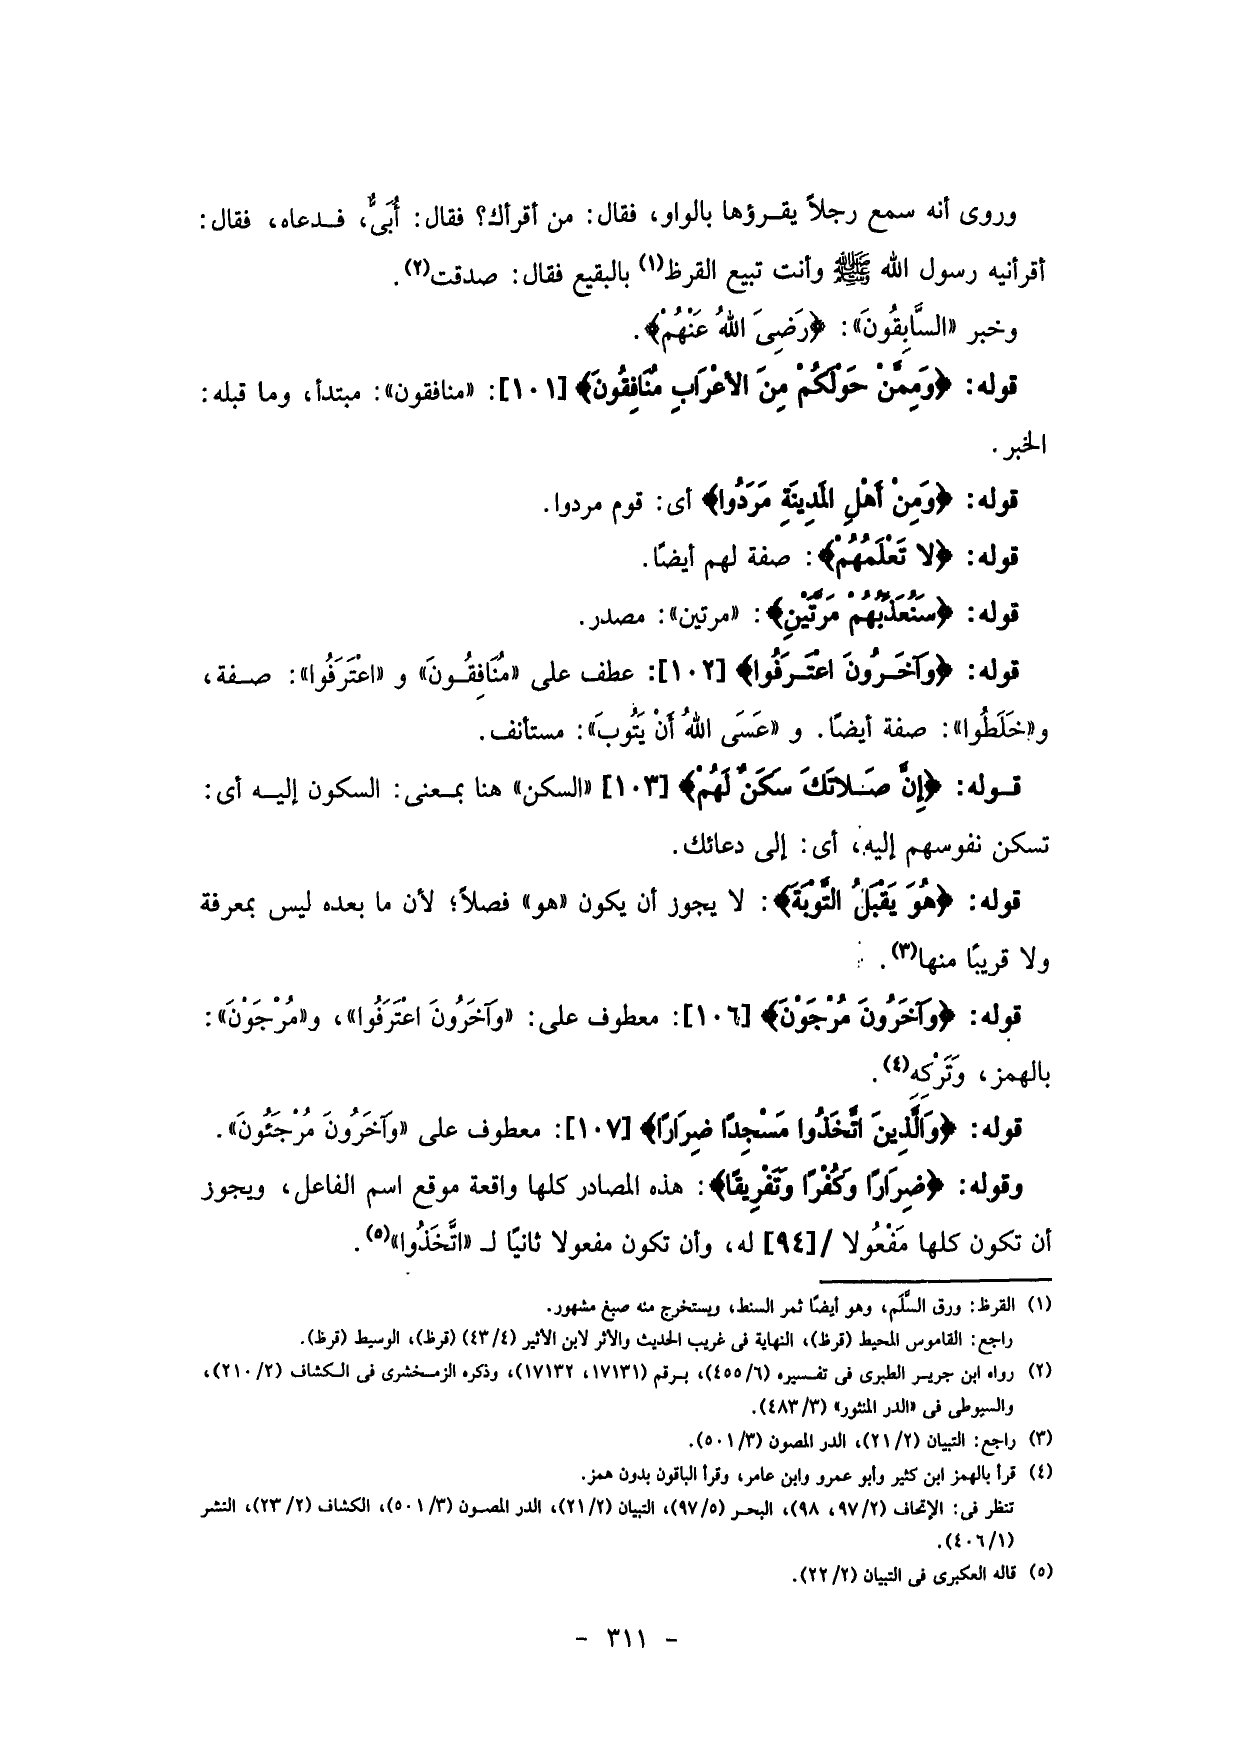 وروى أنه سمع رجلاً يقـرؤها بالواو، فقال: من أقرأك؟ فقال: أُبَىٌّ، فـدعاه، فقال:
أقرأنيه رسول الله ﷺ وأنت تبيع القرظ(١) بالبقيع فقال: صدقت(٢).
وخبر «السَّابِقُونَ»: ﴿رَضِىَ اللهُ عَنْهُمْ﴾.
قوله: ﴿وَمِمَّنْ حَوْلَكُمْ مِنَ الأعْرَابِ مُنَافِقُونَ﴾ [١٠١]: «منافقون»: مبتدأ، وما قبله:
الخبر.
قوله: ﴿وَمِنْ أَهْلِ المَدِينَةِ مَرَدُوا﴾ أى: قوم مردوا.
قوله: ﴿لا تَعْلَمُهُمْ﴾: صفة لهم أيضًا.
قوله: ﴿سَنُعَذِّبُهُمْ مَرَّتَيْنِ﴾: «مرتين»: مصدر.
قوله: ﴿وَآخَـرُونَ اعتَـرَفُوا﴾ [١٠٢]: عطف على «مُنَافِقُـونَ» و «اعْتَرَفُوا»: صـفة،
و«خَلَطُوا»: صفة أيضًا. و «عَسَى اللهُ أَنْ يَتُوبَ»: مستأنف.
قـوله: ﴿إِنَّ صَـلاتَكَ سَكَنٌ لَهُمْ﴾ [١٠٣] «السكن» هنا بمـعنى: السكون إليـه أى:
تسكن نفوسهم إليه، أى: إلى دعائك.
قوله: ﴿هُوَ يَقْبَلُ التَّوْبَةَ﴾: لا يجوز أن يكون «هو» فصلاً؛ لأن ما بعده ليس بمعرفة
ولا قريبًا منها(٣).
قوله: ﴿وَآخَرُونَ مُرْجَوْنَ﴾ [١٠٦]: معطوف على: «وَآخَرُونَ اعْتَرَفُوا»، و«مُرْجَوْنَ»:
بالهمز، وَتَرْكِهِ(٤).
قوله: ﴿وَالَّذِينَ اتَّخَذُوا مَسْجِدًا ضِرَارًا﴾ [١٠٧]: معطوف على «وَآخَرُونَ مُرْجَئُونَ».
وقوله: ﴿ضِرَارًا وَكُفْرًا وَتَفْرِيقًا﴾: هذه المصادر كلها واقعة موقع اسم الفاعل، ويجوز
أن تكون كلها مَفْعُولا /[٩٤] له، وأن تكون مفعولا ثانيًا لـ «اتَّخَذُوا»(٥).
(١) القرظ: ورق السَّلَم، وهو أيضًا ثمر السنط، ويستخرج منه صبغ مشهور.
راجع: القاموس المحيط (قرظ)، النهاية فى غريب الحديث والأثر لابن الأثير (٤٣/٤) (قرظ)، الوسيط (قرظ).
(٢) رواه ابن جريـر الطبرى فى تفـسيره (٤٥٥/٦)، بـرقم (١٧١٣١، ١٧١٣٢)، وذكره الزمـخشرى فى الـكشاف (٢١٠/٢)،
والسيوطى فى «الدر المنثور» (٤٨٣/٣).
(٣) راجع: التبيان (٢١/٢)، الدر المصون (٥٠١/٣).
(٤) قرأ بالهمز ابن كثير وأبو عمرو وابن عامر، وقرأ الباقون بدون همز.
تنظر فى: الإتحاف (٩٧/٢، ٩٨)، البحـر (٩٧/٥)، التبيان (٢١/٢)، الدر المصـون (٥٠١/٣)، الكشاف (٢٣/٢)، النشر
(٤٠٦/١).
(٥) قاله العكبرى فى التبيان (٢٢/٢).
- ٣١١ -